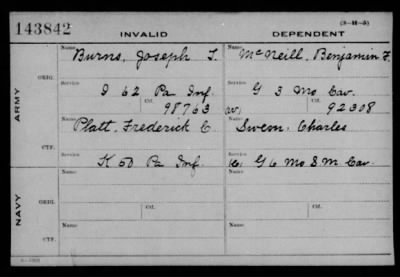 143842
INVALID
DEPENDENT
(3-M-5)
ARMY
ORIG.
Name
Burns, Joseph T.
Name
McNeill, Benjamin F.
Service
I 62 Pa Inf.
Service
G 3 Mo Cav.
Ctf.
98763
Ctf.
92308
CTF.
Name
Platt, Frederick C.
Name
Swem, Charles
Service
K 50 Pa Inf.
Service
G 6 Mo S M Cav.
NAVY
ORIG.
Name
Ctf.
Name
Ctf.
CTF.
Name
Name